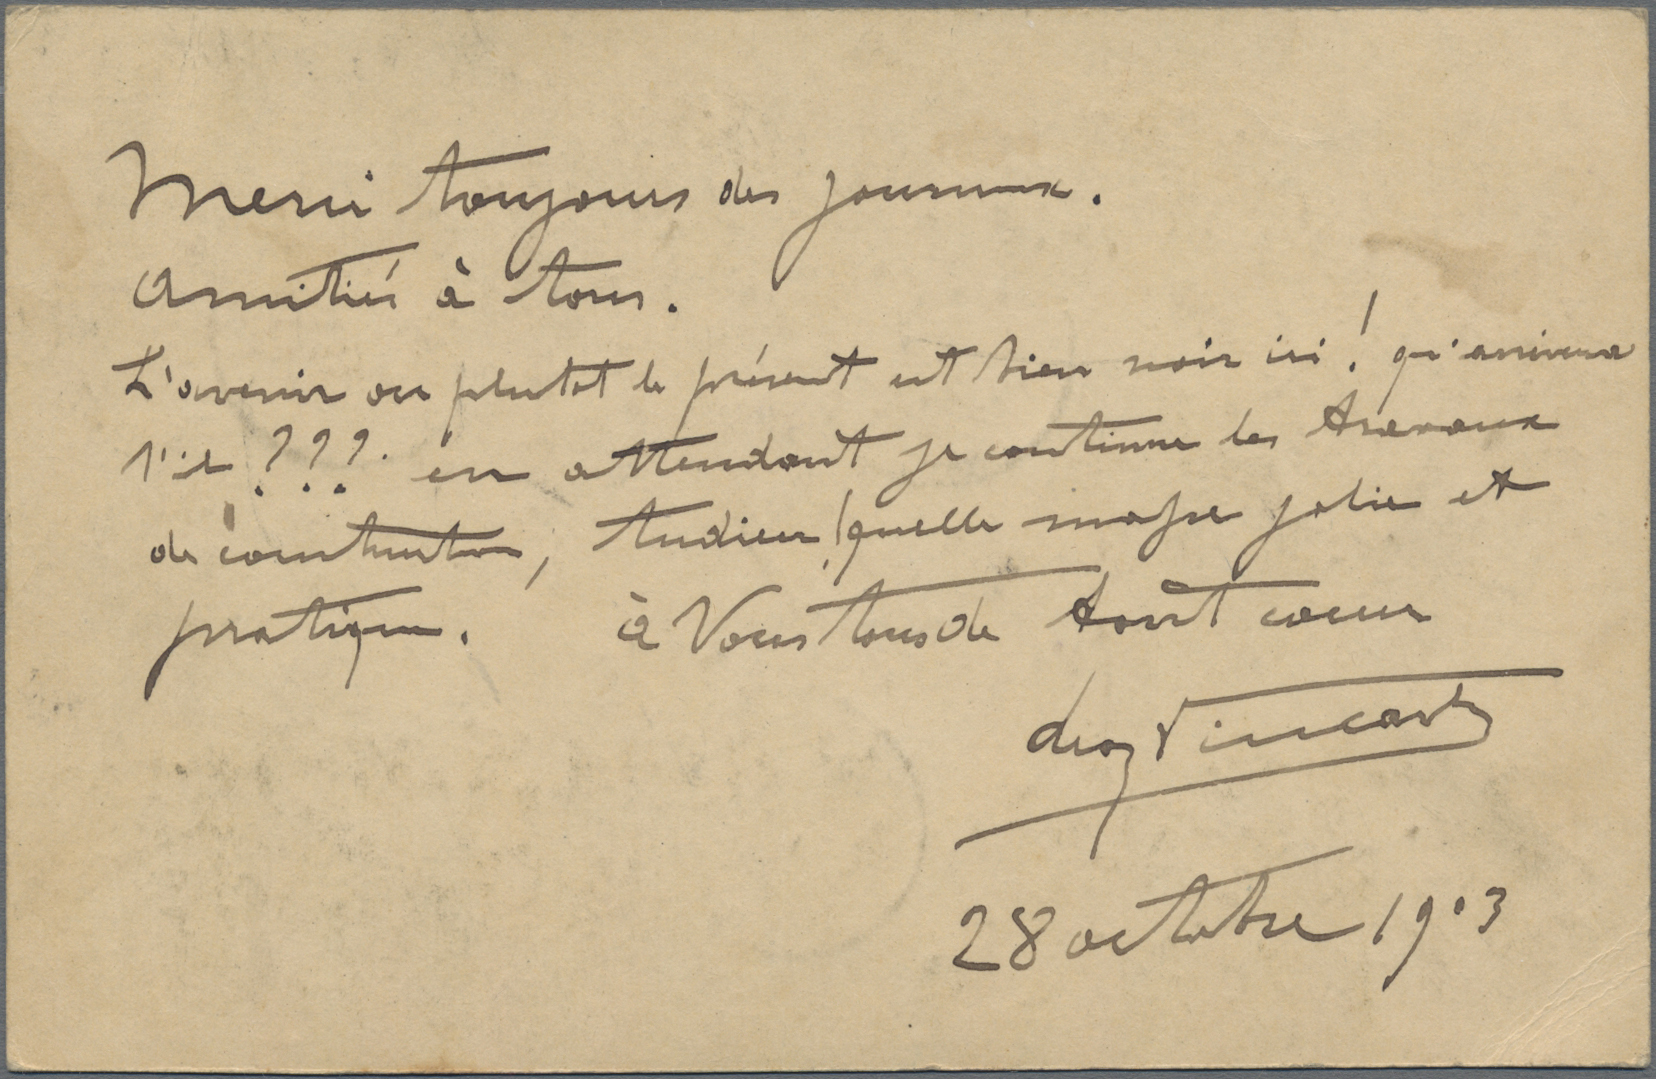 Merci toujours des journaux.
Amitiés à tous.
L'avenir ou plutot le présent est bien noir ici ! qu'arrivera
t'il ??? en attendant je continue les travaux
de construction, tudieu ! quelle masse jolie et
pratique. à Vous tous de tout cœur
Vincart
28 octobre 1903